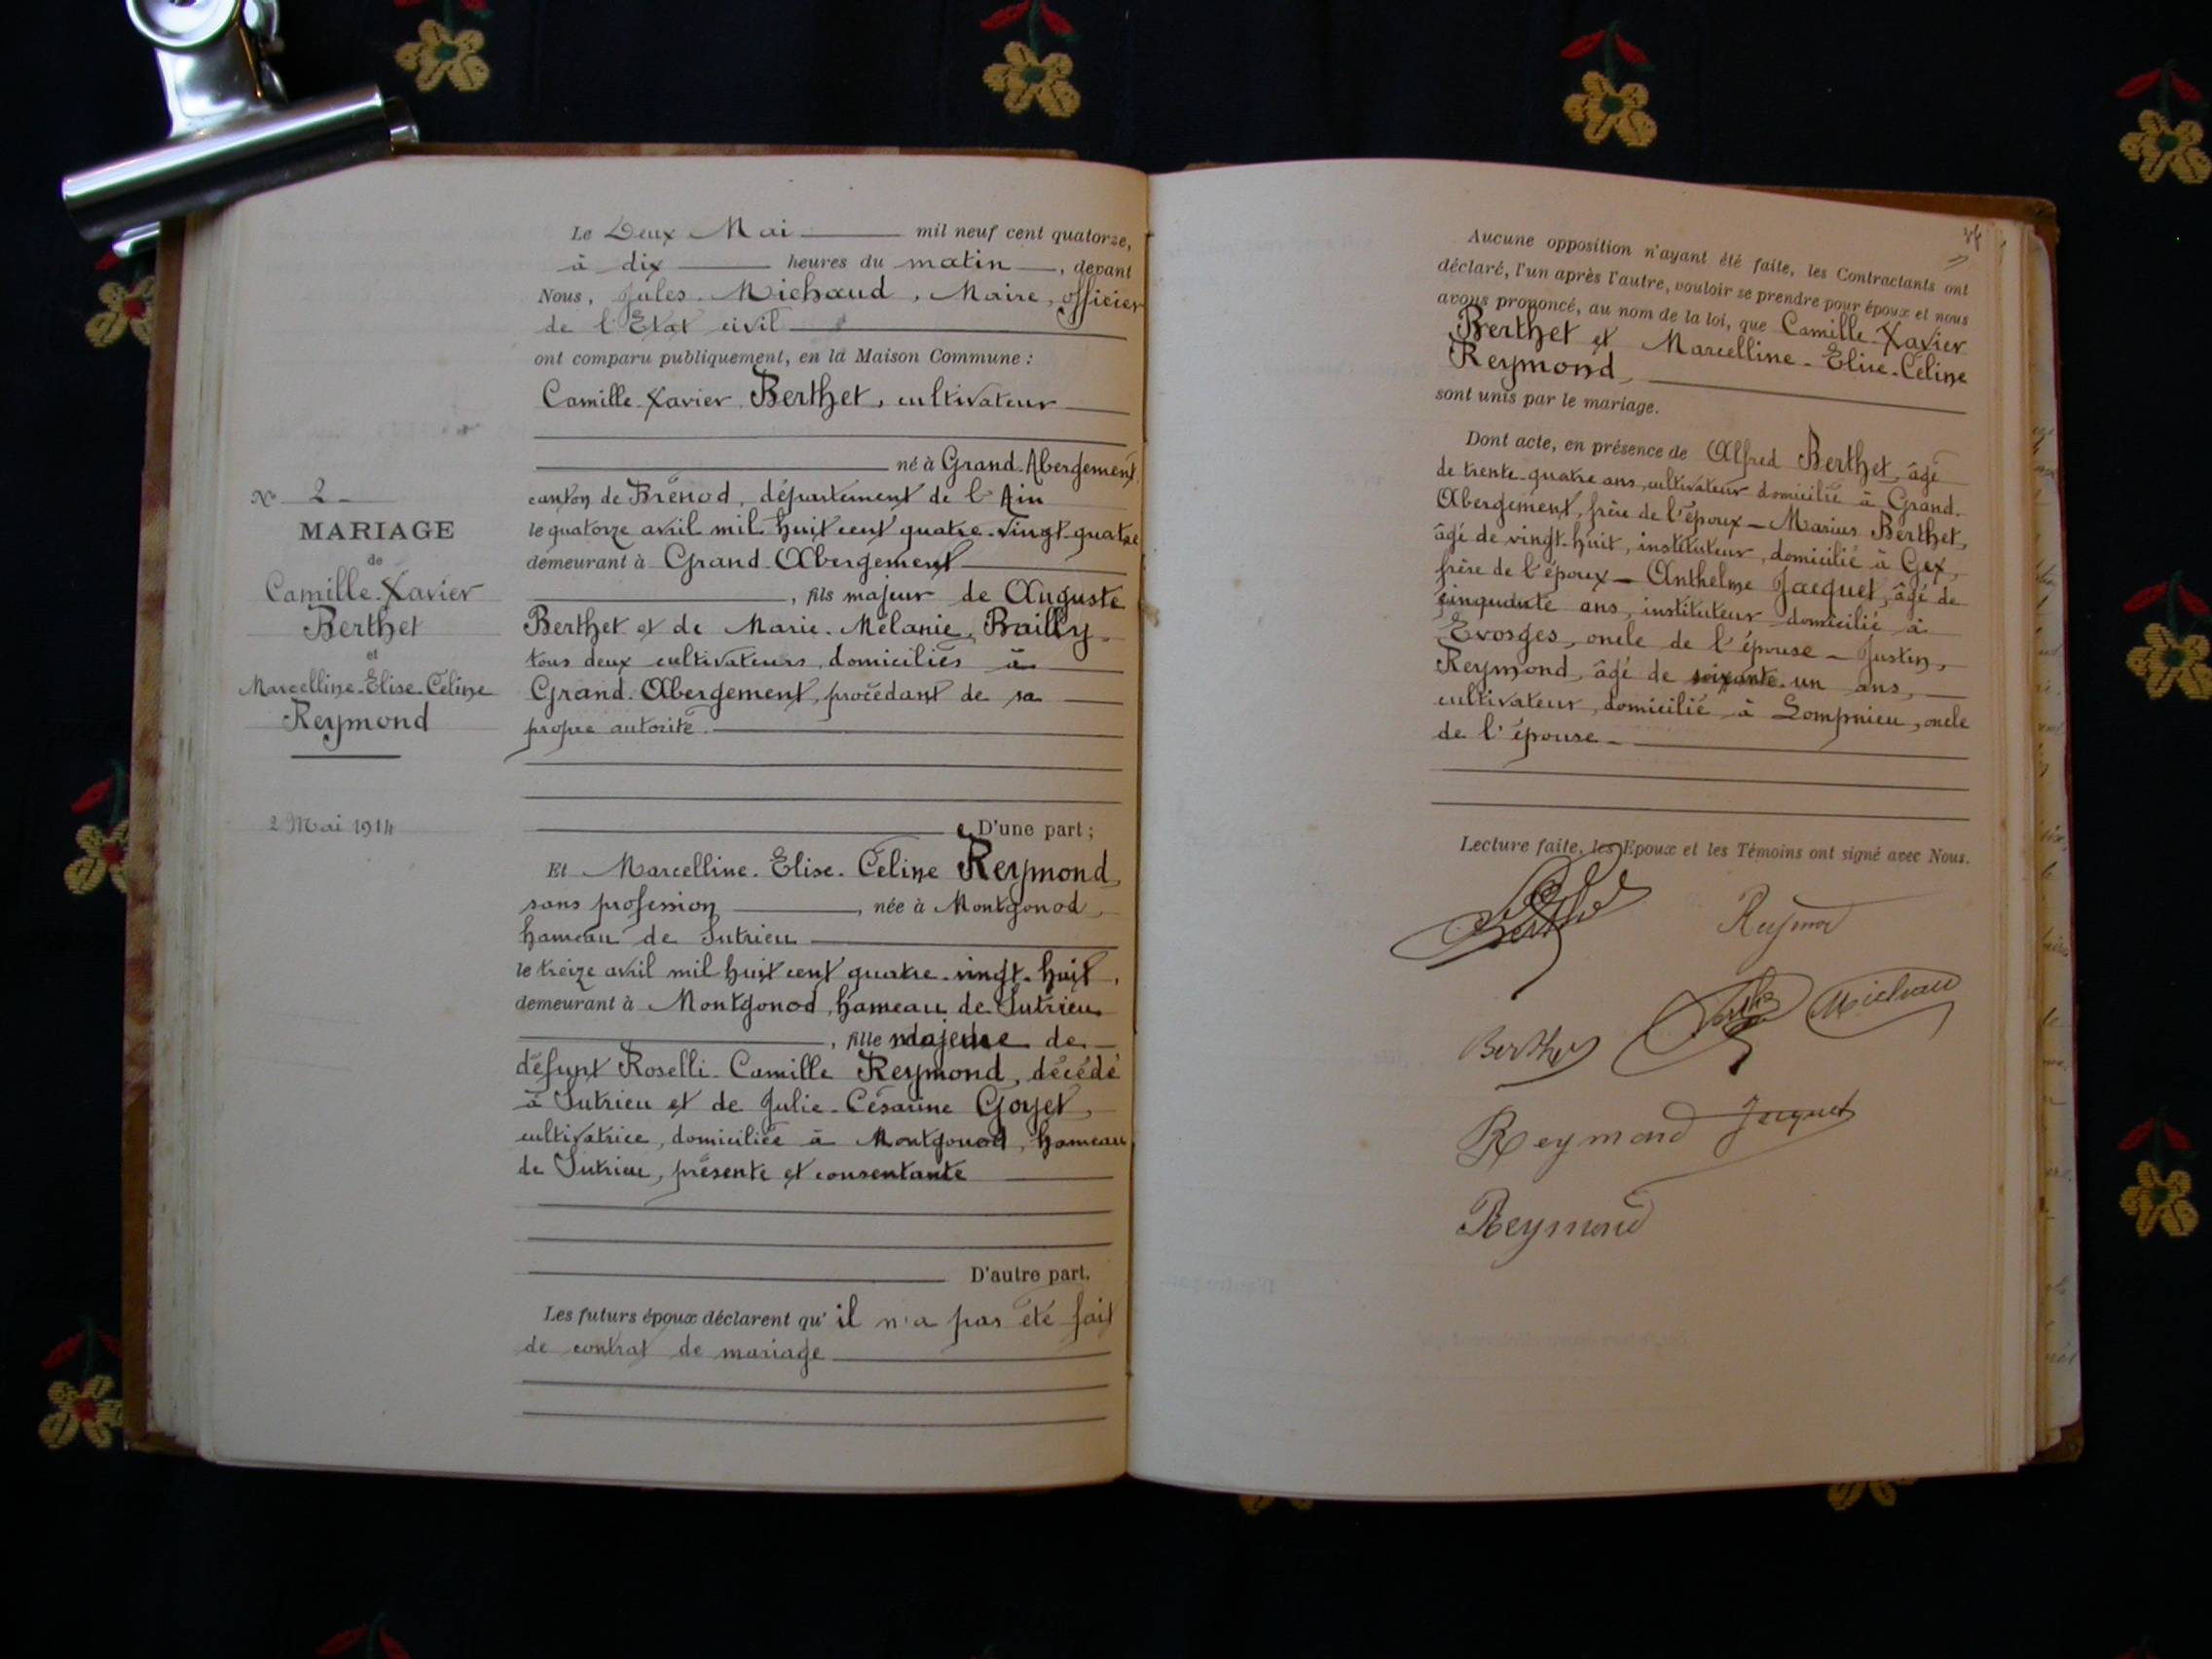 N° 2
MARIAGE
de
Camille-Xavier
Berthet
et
Marcelline-Elise-Céline
Reymond
2 Mai 1914
Le Deux Mai mil neuf cent quatorze,
à dix heures du matin, devant
Nous, Jules Michaud, Maire, officier
de l'Etat civil
ont comparu publiquement, en la Maison Commune :
Camille-Xavier Berthet, cultivateur
né à Grand-Abergement,
canton de Brénod, département de l'Ain
le quatorze avril mil huit cent quatre-vingt-quatre
demeurant à Grand-Abergement
, fils majeur de Auguste
Berthet et de Marie-Mélanie Bailly
tous deux cultivateurs, domiciliés à
Grand-Abergement, procédant de sa
propre autorité.
D'une part ;
Et Marcelline-Elise-Céline Reymond,
sans profession, née à Montgonod,
hameau de Sutrieu
le treize avril mil huit cent quatre-vingt-huit,
demeurant à Montgonod, hameau de Sutrieu
, fille majeure de
défunt Roselli-Camille Reymond, décédé
à Sutrieu et de Julie-Césarine Goyet,
cultivatrice, domiciliée à Montgonod, hameau
de Sutrieu, présente et consentante
D'autre part.
Les futurs époux déclarent qu'il n'a pas été fait
de contrat de mariage
Aucune opposition n'ayant été faite, les Contractants ont
déclaré, l'un après l'autre, vouloir se prendre pour époux et nous
avons prononcé, au nom de la loi, que Camille-Xavier
Berthet et Marcelline-Elise-Céline
Reymond
sont unis par le mariage.
Dont acte, en présence de Alfred Berthet, âgé
de trente-quatre ans, cultivateur domicilié à Grand-
Abergement, frère de l'époux — Marius Berthet,
âgé de vingt-huit, instituteur, domicilié à Gex,
frère de l'époux — Anthelme Jacquet, âgé de
cinquante ans, instituteur domicilié à
Evosges, oncle de l'épouse — Justin
Reymond, âgé de soixante-un ans,
cultivateur, domicilié à Lompnieu, oncle
de l'épouse —
Lecture faite, les Epoux et les Témoins ont signé avec Nous.
Berthet Reymond
Berthet Michaud
Reymond Jacquet
Reymond